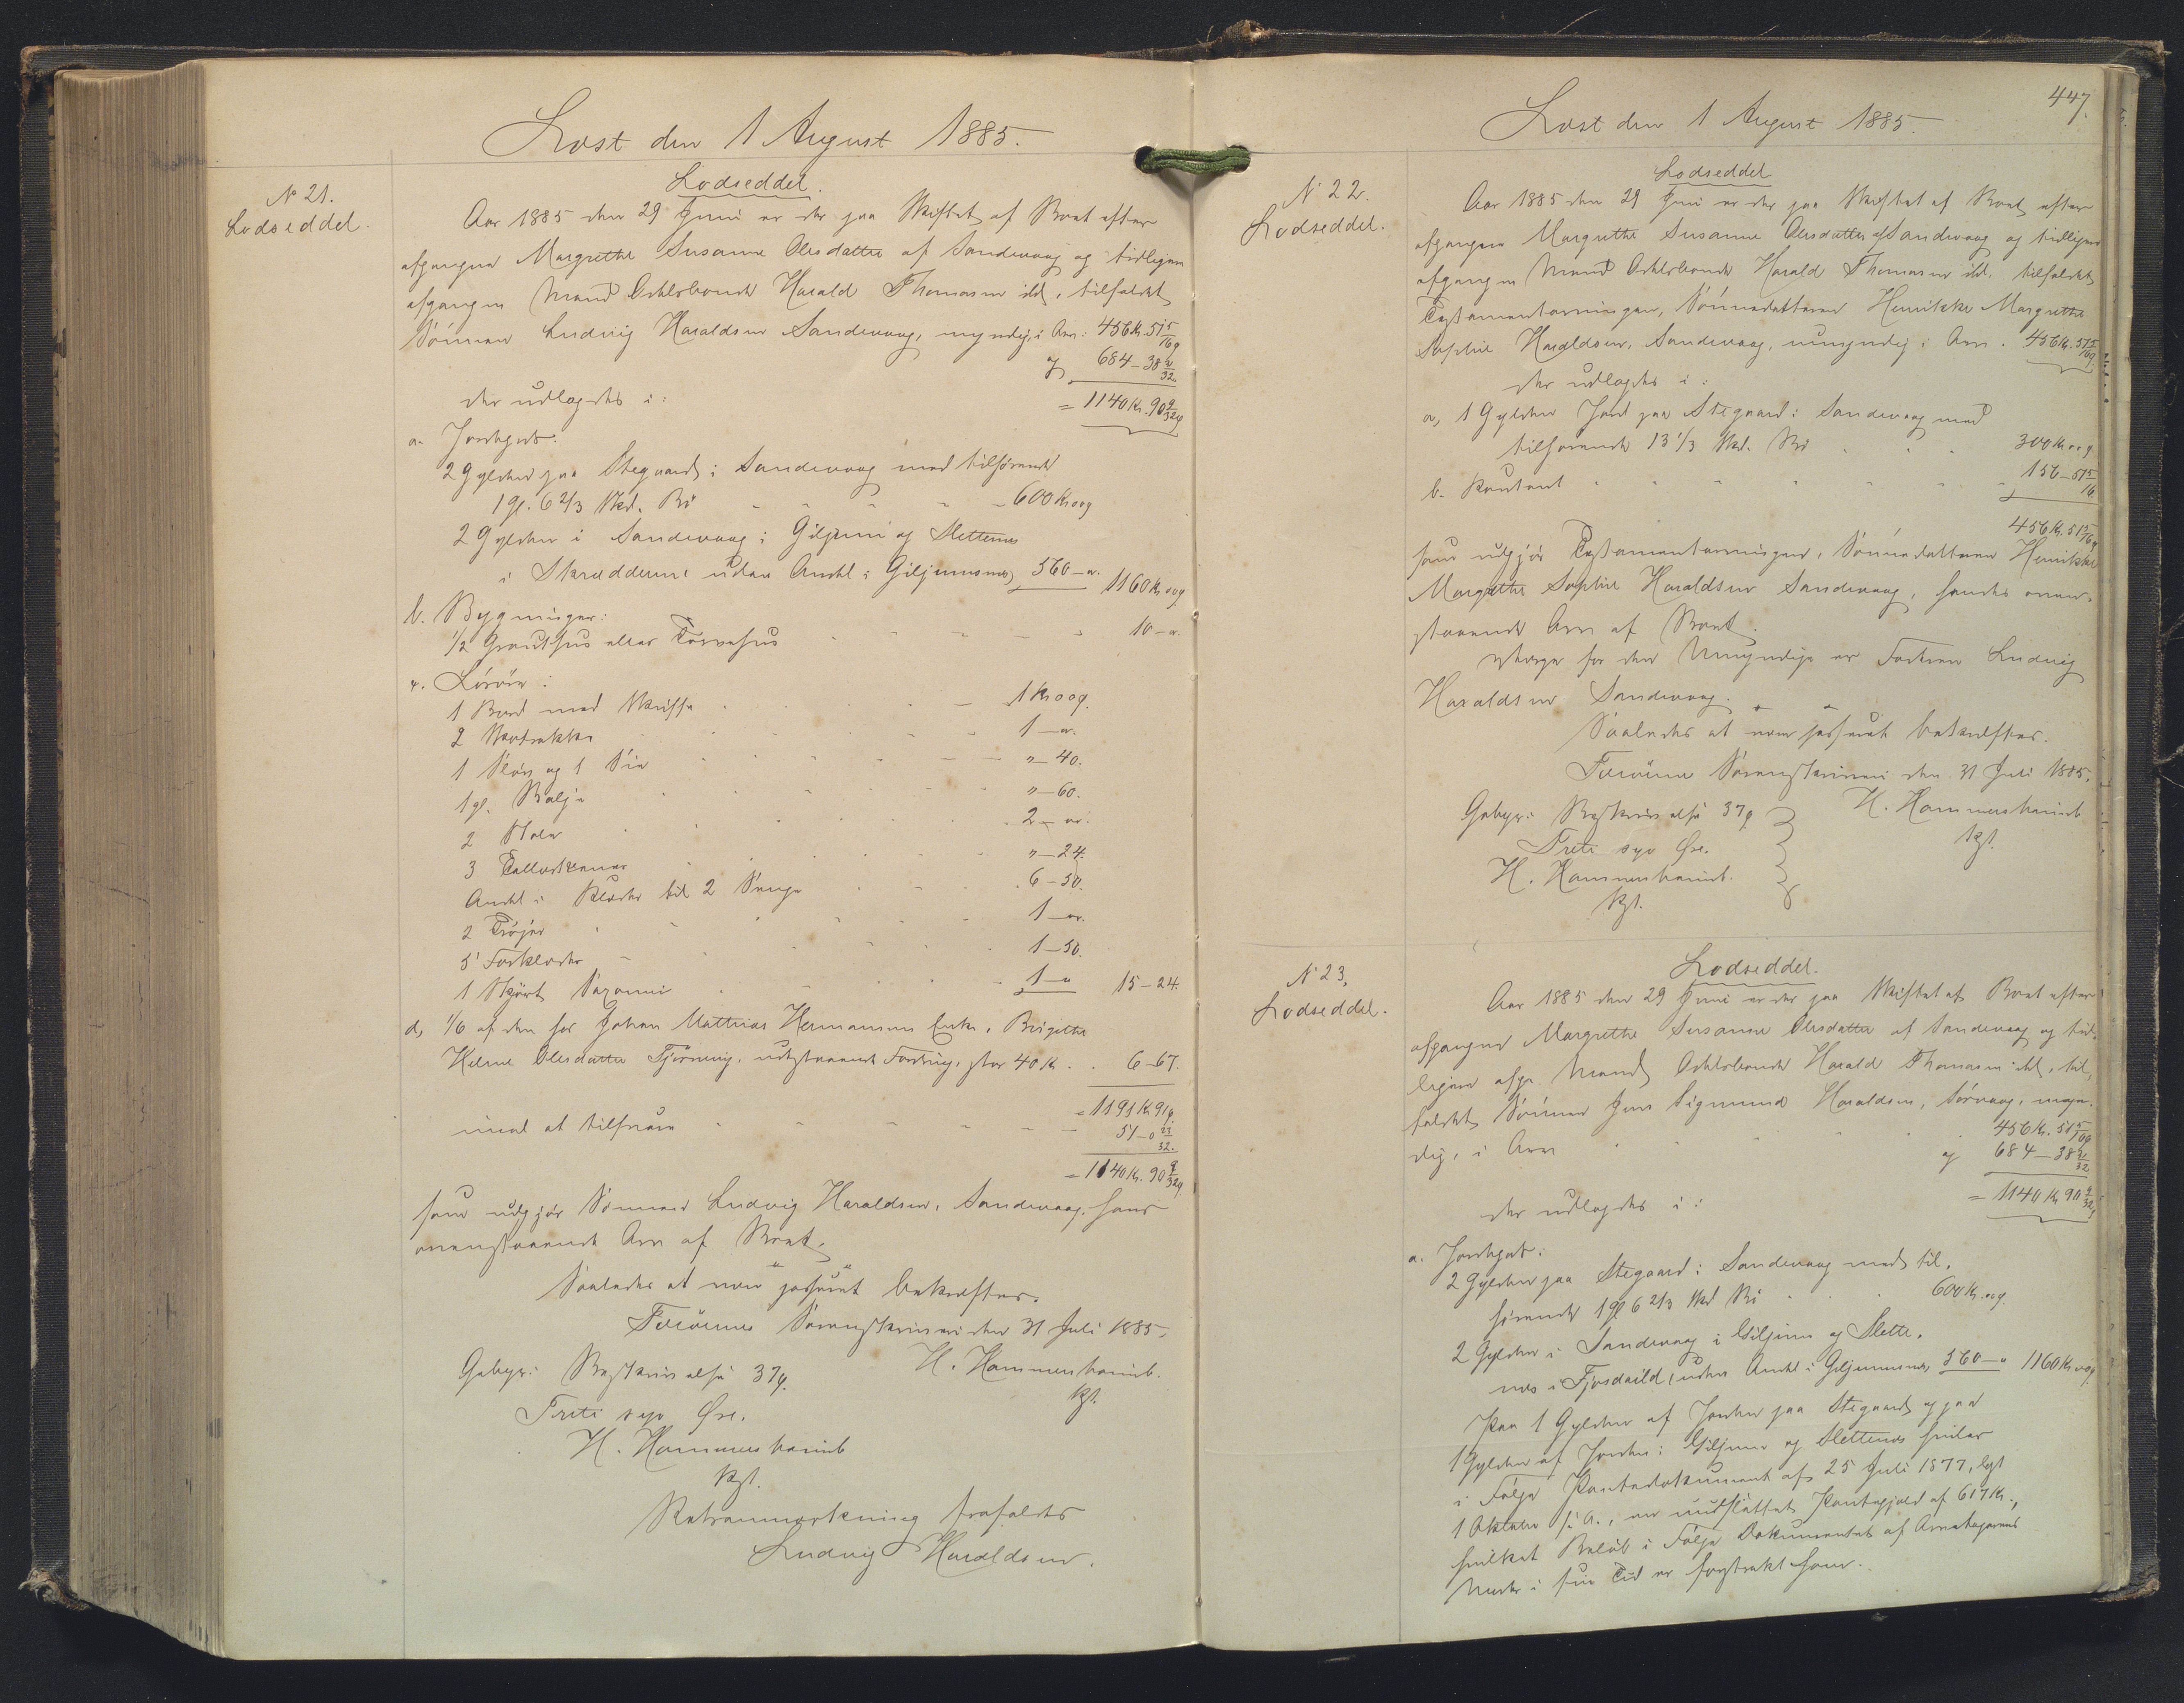 Læst den 1 August 1885.
No 21.
Lodseddel.
Lodseddel.
Aar 1885 den 29 Juni er der paa Skiftet af Boet efter
afgangne Margrethe Susanne Olesdatter af Sandevaag og tidligere
afgangen Mand Odelsbonde Harald Thomasen ibd, tilfaldet
Sönnen Ludvig Haraldsen Sandevaag, myndig, i Arv: 456 Kr. 51 5/16 ø
og 684 - 38 31/32
der udlagdes i: = 1140 Kr. 90 9/32 ø
a. Jordegods:
2 Gylden paa Stegaard i Sandevaag med tilhörende
1 gl. 6 2/3 Skd. Bö - 600 Kr oo ø
2 Gylden i Sandevaag i Giljum og Slettenes
i Skrædderne uden Andel i Giljumsnes, 560 - "
1160 Kr oo ø
b. Bygninger:
1/2 Grauthus eller Törvehus 10 - "
c. Lösöre:
1 Bord med Skuffe 1 Kr oo ø.
2 1 - "
1 og 1 Sie " - 40.
1 gl. Balje " - 60.
2 Stole 2 - "
3 Tallerkener " - 24.
Andel i Klæder til 2 Senge 6 - 50.
2 Tröjer 1 - "
5 Forklæder 1 - 50.
1 Skjört 1 - " 15 - 24.
d, 1/6 af den hos Johan Matthias Hermansens Enke, Birgithe
Helene Olesdatter Tjörnevig, udestaaende Fordring, stor 40 Kr. 6 - 67.
= 1191 Kr 91 ø
imod at tilsvare 51 - 0 23/32.
= 1140 Kr. 90 9/32 ø
som udgjör Sönnens Ludvig Haraldsen, Sandevaag, hans
ovenstaaende Arv af Boet.
Saaledes at være passeret bekræftes.
Færöernes Sorenskriveri den 31 Juli 1885.
H. Hammershaimb.
kst.
Gebyr: Beskrivelse 37 ø.
Treti syv Øre.
H. Hammershaimb
kst.
Retsanmærkning frafaldes
Ludvig Haraldsen.
447.
Læst den 1 August 1885.
N 22.
Lodseddel.
Lodseddel
Aar 1885 den 29 Juni er der paa Skiftet af Boet efter
afgangne Margrethe Susanne Olesdatter af Sandevaag og tidligere
afgangen Mand Odelsbonde Harald Thomasen ibd. tilfaldet
Testamentarvingen, Sönnedatteren Henrikke Margrethe
Sophie Haraldsen, Sandevaag, umyndig i Arv. 456 Kr. 51 5/16 ø
der udlagdes i:
a, 1 Gylden Jord paa Stegaard i Sandevaag med
tilhørende 13 1/3 Skd. Bö 300 Kr oo ø
b. Kontant 156 - 51 5/16
456 Kr. 51 5/16 ø
som udgjör Testamentarvingens, Sönnedatteren Henrikke
Margrethe Sophie Haraldsen Sandevaag, hendes oven-
staaende Arv af Boet.
Værge for den Umyndige er Faderen Ludvig
Haraldsen Sandevaag.
Saaledes at være passeret bekræftes.
Færöerne Sorenskriveri den 31 Juli 1885.
H. Hammershaimb
kst.
Gebyr: Beskrivelse 37 ø
Treti syv Øre.
H. Hammershaimb.
kst.
N 23,
Lodseddel.
Lodseddel.
Aar 1885 den 29 Juni er der paa Skiftet af Boet efter
afgangne Margrethe Susanne Olesdatter af Sandevaag og tid-
ligere afgn. Mand Odelsbonde Harald Thomasen ibd, til-
faldet Sönnen Jens Sigmund Haraldsen, Sörvaag, myn-
dig, i Arv 456 Kr. 51 5/16 ø
og 684 - 38 31/32
der udlagdes i: = 1140 Kr 90 9/32 ø
a. Jordegods:
2 Gylden paa Stegaard i Sandevaag med til,
hörende 1 gl 6 2/3 Skd Bö 600 Kr. oo ø.
2 Gylden i Sandevaag i Giljum og Slette-
nes i Fjosdeild, uden Andel i Giljumsnes, 560 - " 1160 Kr oo ø
Paa 1 Gylden af Jorden paa Stegaard og paa
1 Gylden af Jorden i Giljum og Slettenes hviler
i Følge Pantedokument af 25 Juli 1877, lyst
1 Oktober s. A., en uudslettet Pantegjæld af 617 Kr.,
hvilket Beløb i Følge Dokumentet af Arvetagerens
Moder i sin Tid er forstrakt ham.